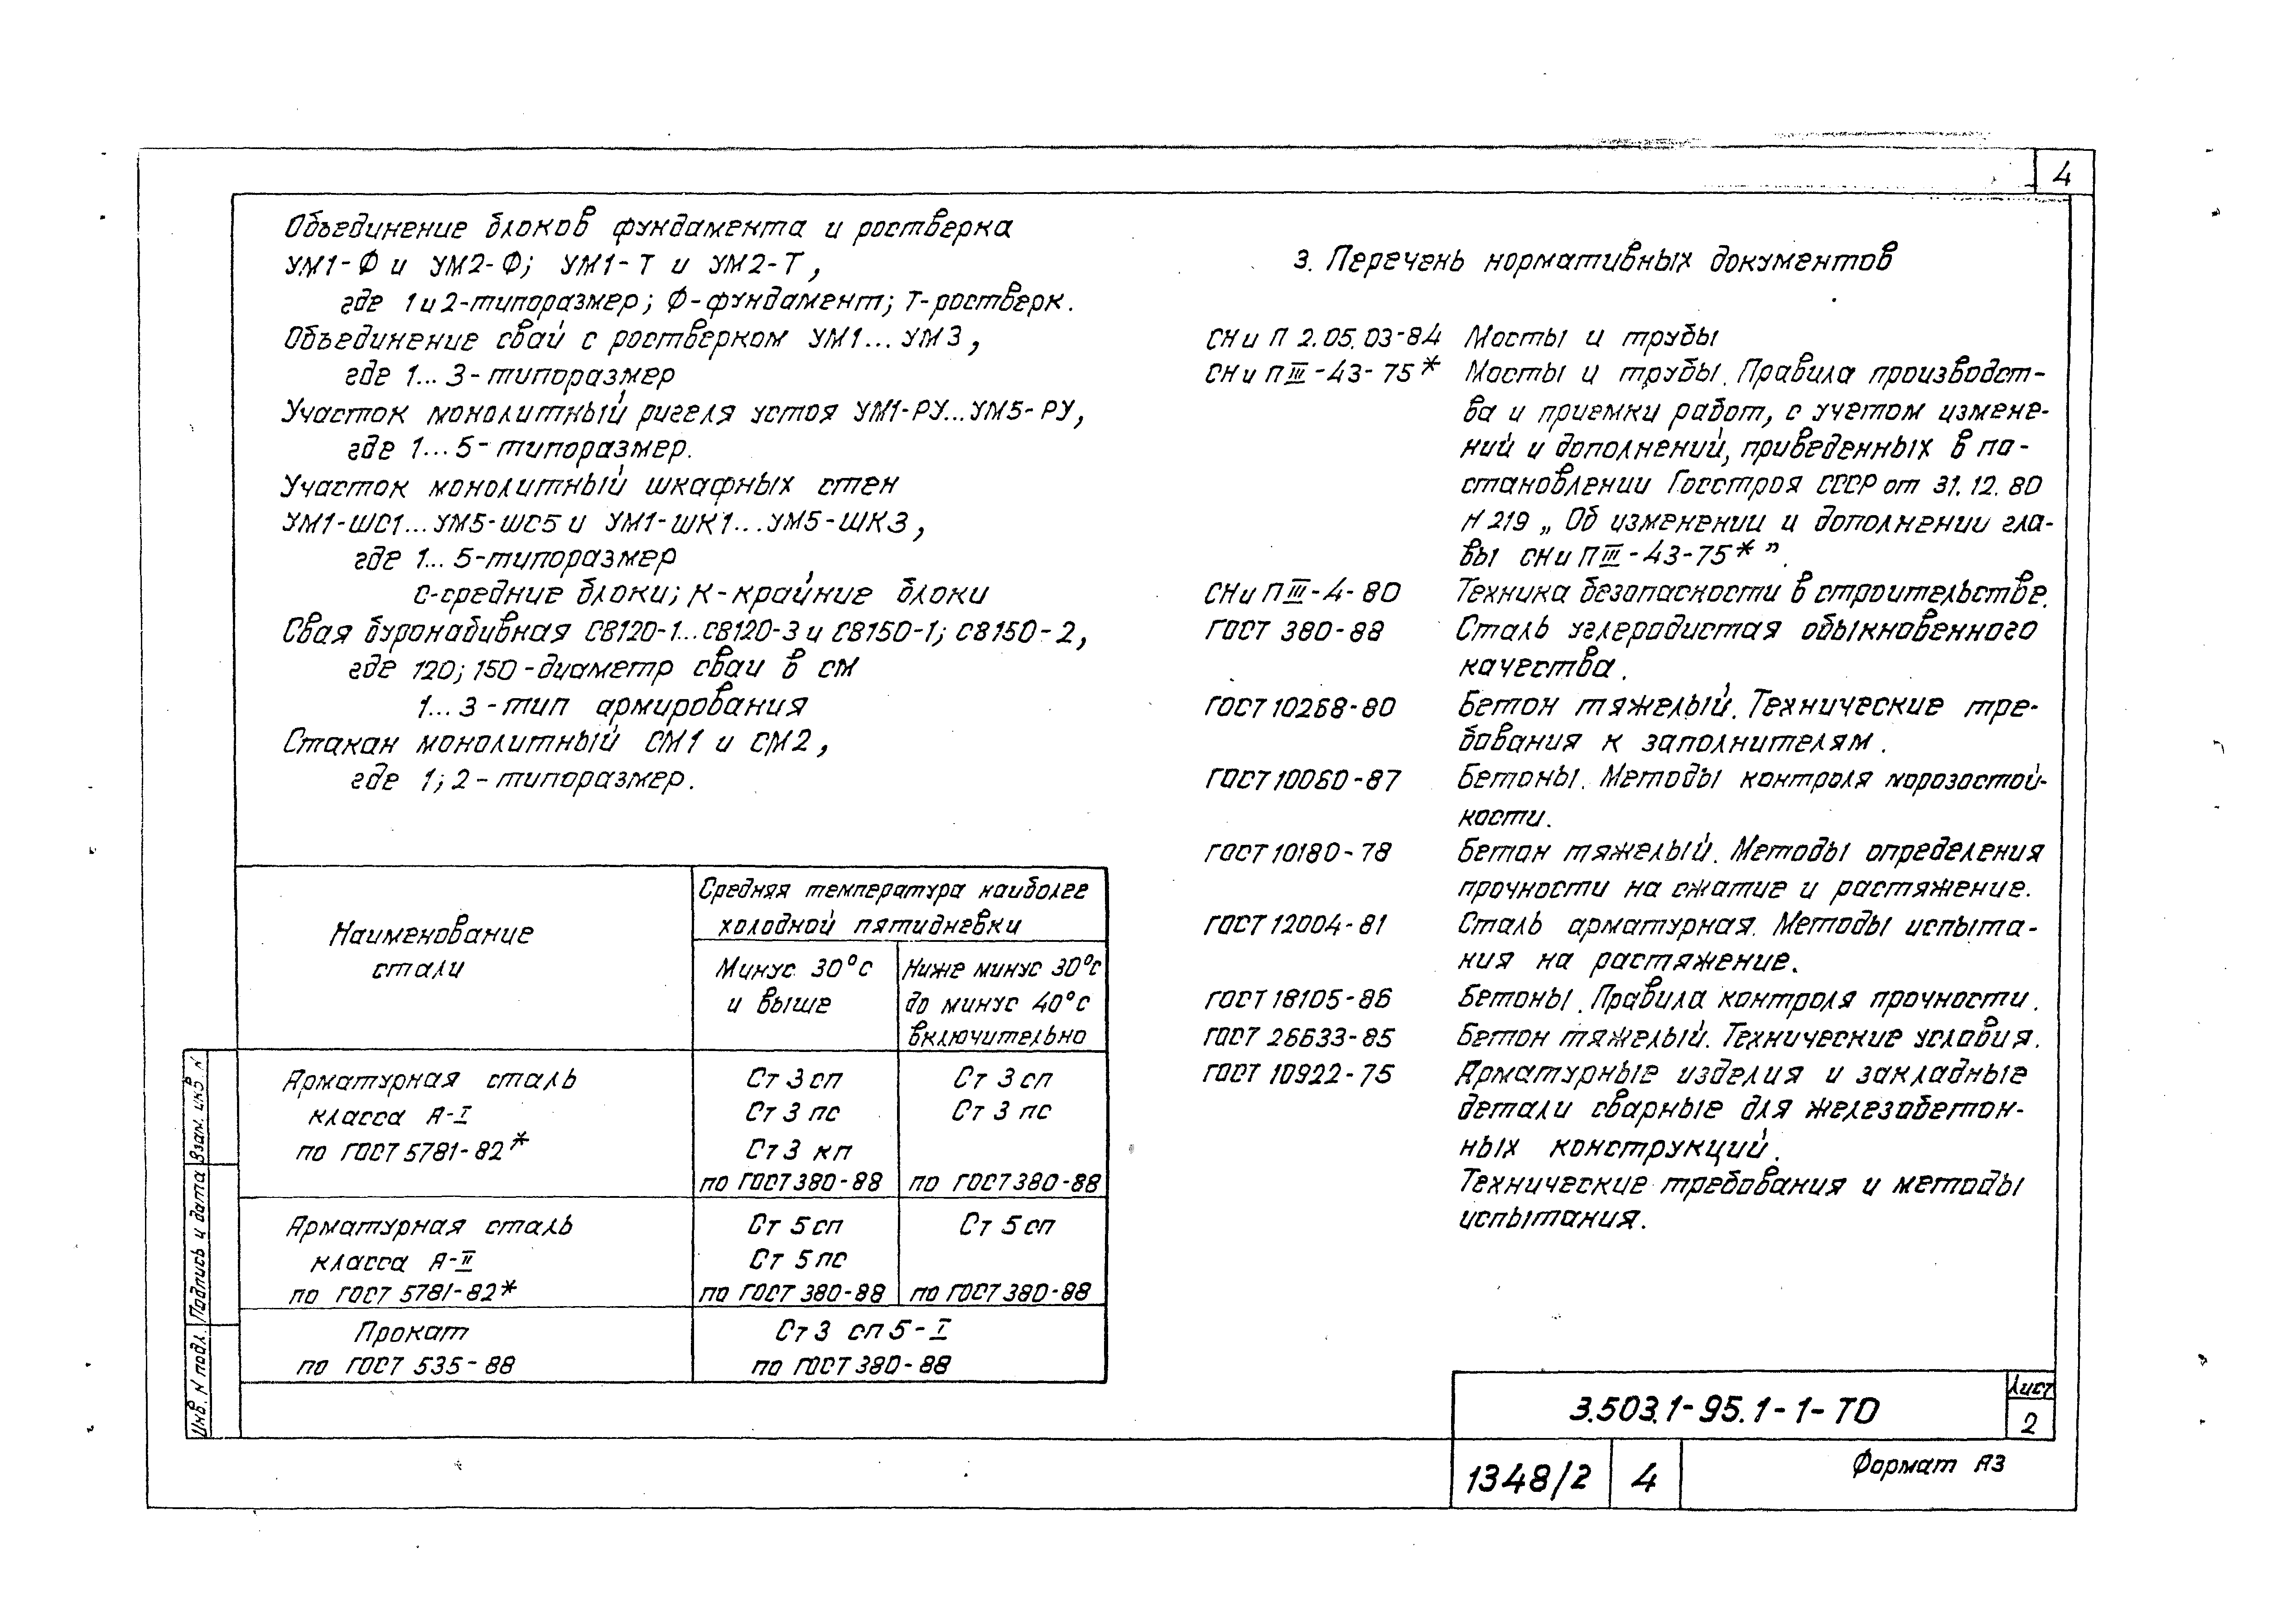 4
Объединение блоков фундамента и ростверка
УМ1-Ф и УМ2-Ф; УМ1-Т и УМ2-Т,
где 1 и 2-типоразмер; Ф-фундамент; Т-ростверк.
Объединение свай с ростверком УМ1...УМ3,
где 1...3-типоразмер
Участок монолитный ригеля устоя УМ1-РУ...УМ5-РУ,
где 1...5-типоразмер.
Участок монолитный шкафных стен
УМ1-ШС1...УМ5-ШС5 и УМ1-ШК1...УМ5-ШК3,
где 1...5-типоразмер
С-средние блоки; К-крайние блоки
Свая буронабивная СВ120-1...СВ120-3 и СВ150-1; СВ150-2,
где 120; 150-диаметр сваи в см
1...3-тип армирования
Стакан монолитный СМ1 и СМ2,
где 1; 2-типоразмер.
Наименование
стали
Средняя температура наиболее
холодной пятидневки
Минус 30°С
и выше
Ниже минус 30°С
до минус 40°С
включительно
Арматурная сталь
класса А-I
по ГОСТ 5781-82*
Ст 3 сп
Ст 3 пс
Ст 3 кп
по ГОСТ 380-88
Ст 3 сп
Ст 3 пс
по ГОСТ 380-88
Арматурная сталь
класса А-II
по ГОСТ 5781-82*
Ст 5 сп
Ст 5 пс
по ГОСТ 380-88
Ст 5 сп
по ГОСТ 380-88
Прокат
по ГОСТ 535-88
Ст 3 сп 5-I
по ГОСТ 380-88
3. Перечень нормативных документов
СНиП 2.05.03-84 Мосты и трубы
СНиП III-43-75* Мосты и трубы. Правила производст-
ва и приемки работ, с учетом измене-
ний и дополнений, приведенных в по-
становлении Госстроя СССР от 31.12.80
N 219 „Об изменении и дополнении гла-
вы СНиП III-43-75*”.
СНиП III-4-80 Техника безопасности в строительстве.
ГОСТ 380-88 Сталь углеродистая обыкновенного
качества.
ГОСТ 10268-80 Бетон тяжелый. Технические тре-
бования к заполнителям.
ГОСТ 10060-87 Бетоны. Методы контроля морозостой-
кости.
ГОСТ 10180-78 Бетон тяжелый. Методы определения
прочности на сжатие и растяжение.
ГОСТ 12004-81 Сталь арматурная. Методы испыта-
ния на растяжение.
ГОСТ 18105-86 Бетоны. Правила контроля прочности.
ГОСТ 26633-85 Бетон тяжелый. Технические условия.
ГОСТ 10922-75 Арматурные изделия и закладные
детали сварные для железобетон-
ных конструкций.
Технические требования и методы
испытания.
Взам. инв. N
Подпись и дата
Инв. N подл.
3.503.1-95.1-1-ТО
Лист
2
1348/2
4
Формат А3